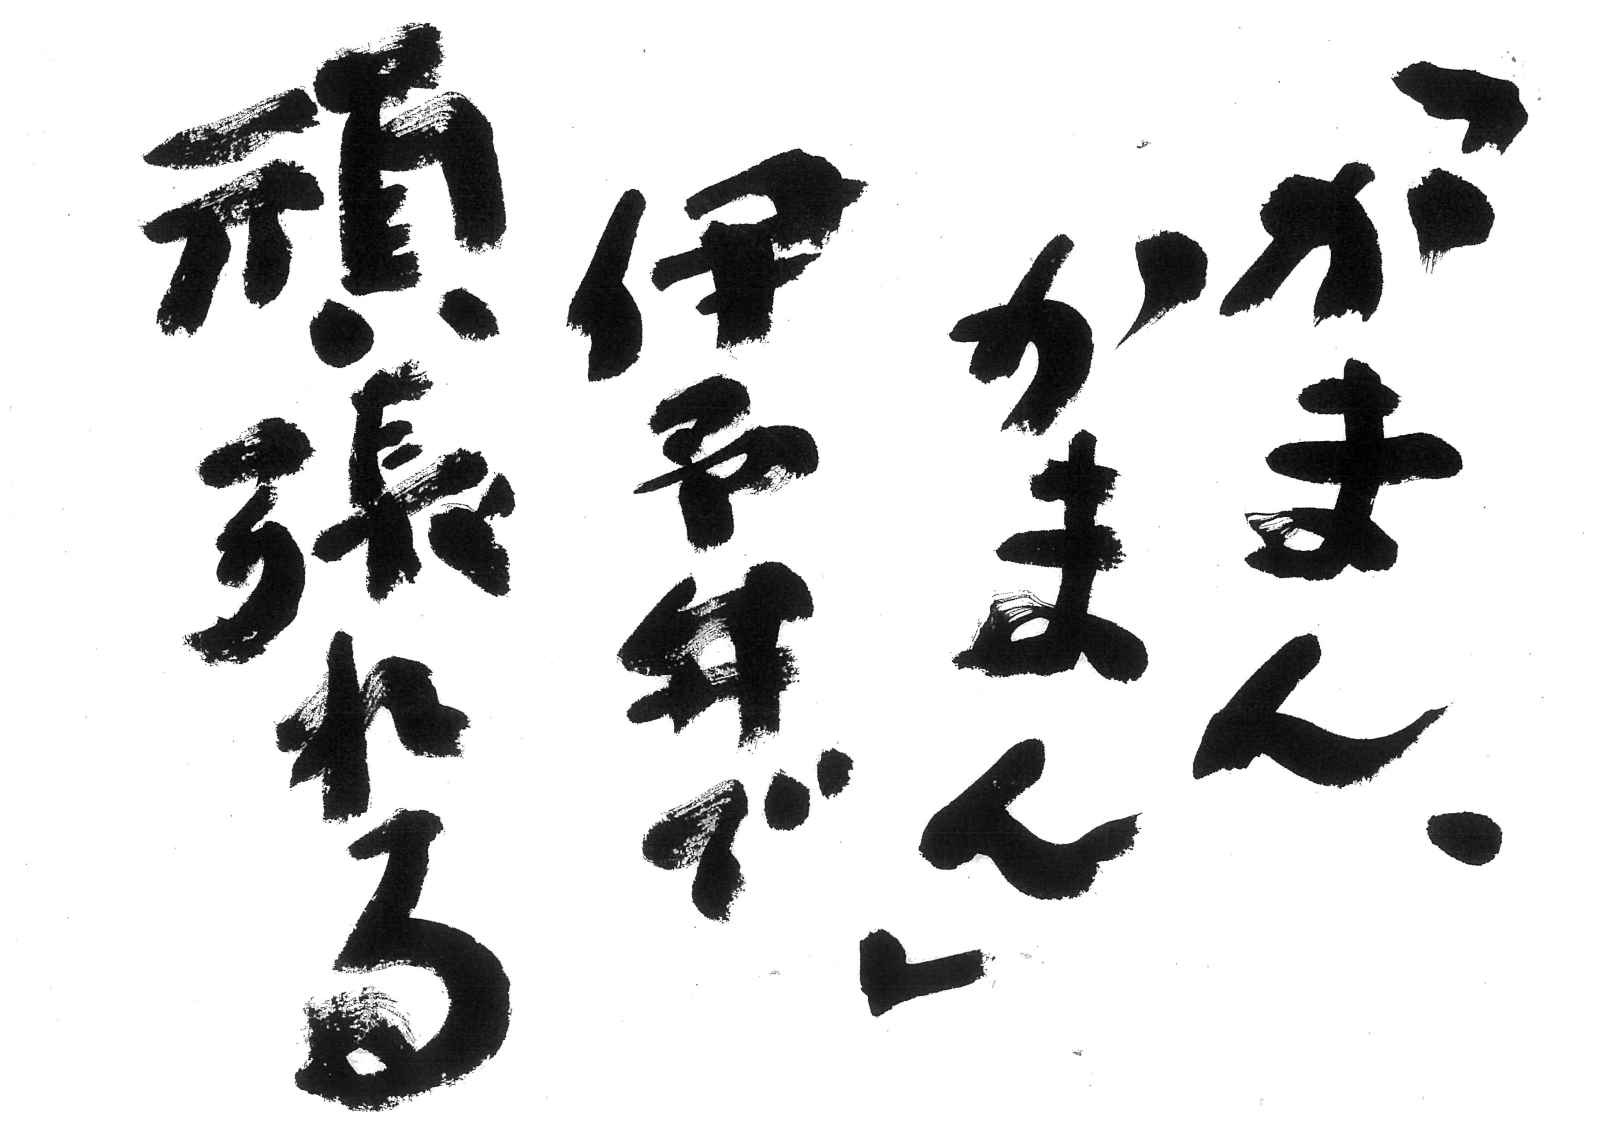 「かまん、
かまん」
伊予弁で
頑張れる